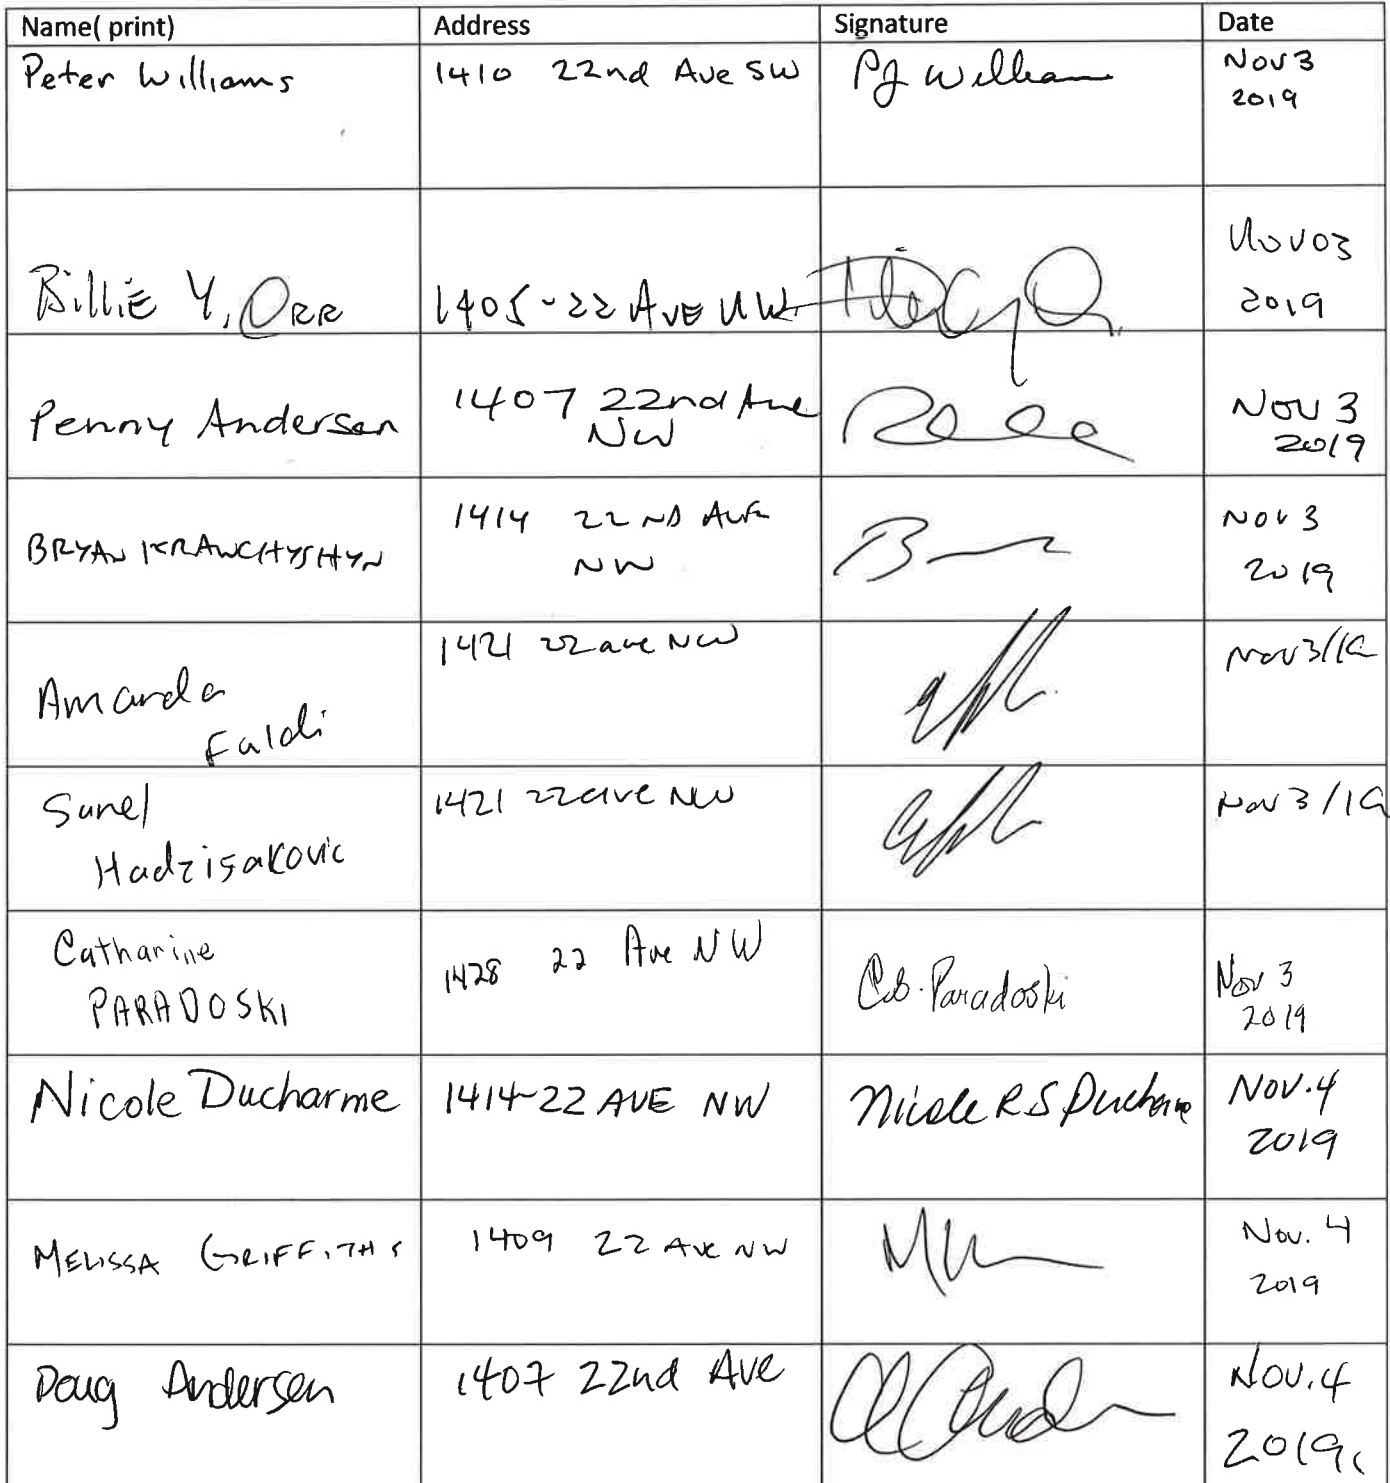 Name( print) Address Signature Date
Peter Williams 1410 22nd Ave SW PJ William Nov 3
2019
Billie Y. Orr 1405-22 Ave NW Nov 03
2019
Penny Andersen 1407 22nd Ave
NW Nov 3
2019
BRYAN KRAWCHYSHYN 1414 22ND AVE
NW Nov 3
2019
Amanda
Faldi 1421 22 ave NW Nov 3/19
Sanel
Hadzisakovic 1421 22 ave NW Nov 3/19
Catharine
PARADOSKI 1428 22 Ave NW C.B. Paradoski Nov 3
2019
Nicole Ducharme 1414-22 AVE NW Nicole R S Ducharme Nov. 4
2019
MELISSA GRIFFITHS 1409 22 AVE NW Nov. 4
2019
Doug Andersen 1407 22nd Ave Nov. 4
2019